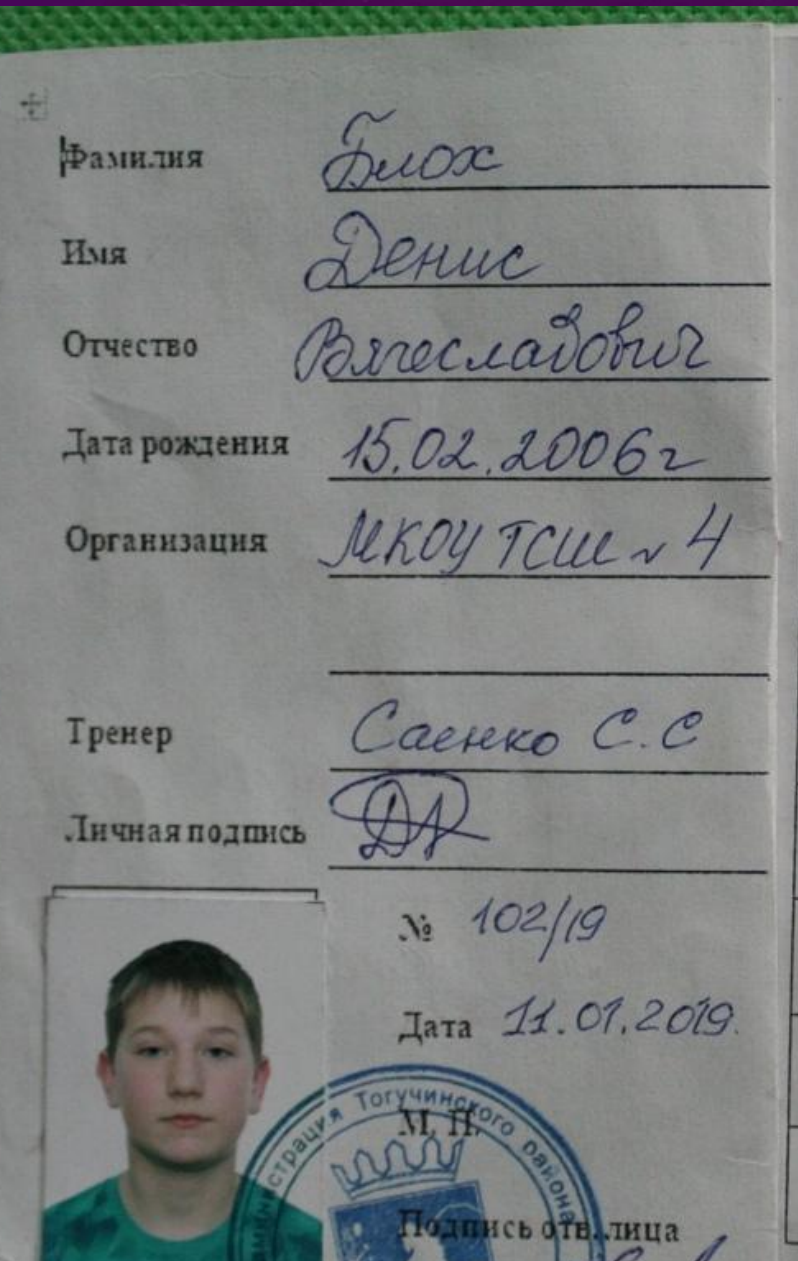 Фамилия Блох
Имя Денис
Отчество Вячеславович
Дата рождения 15.02.2006г
Организация МКОУ ТСШ № 4
Тренер Саенко С.С
Личная подпись
№ 102/19
Дата 11.01.2019.
М. П.
Администрация Тогучинского района
Подпись отв. лица